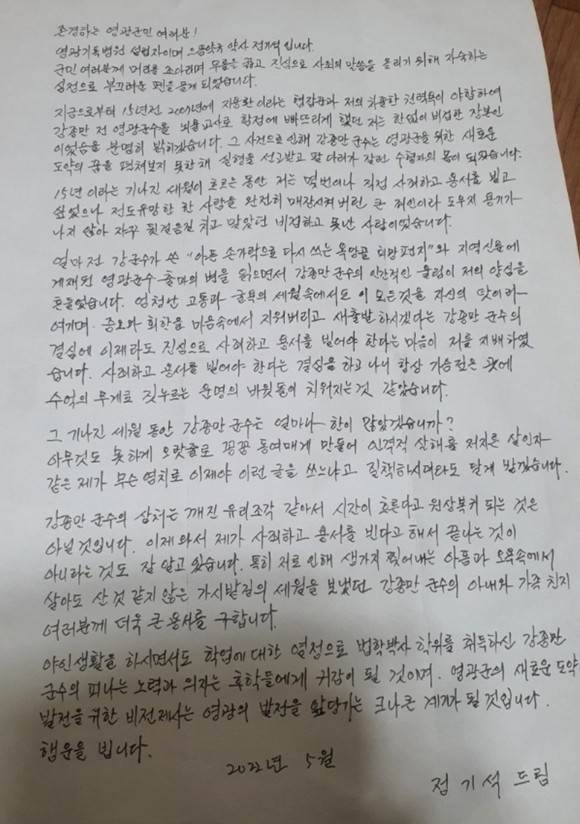 존경하는 영광군민 여러분!
영광기독병원 설립자이며 으뜸약국 약사 정기석 입니다.
군민 여러분께 머리를 조아리며 무릎을 꿇고 진심으로 사죄의 말씀을 올리기 위해 자숙하는
심정으로 부끄러운 펜을 들게 되었습니다.
지금으로부터 15년전 2007년에 이라는 저의 친족이 야합하여
강종만 전 영광군수를 뇌물교사로 함정에 빠뜨리게 했던 저는 한없이 비겁한 장본인
이었음을 분명히 밝히겠습니다. 그 사건으로 인해 강종만 군수는 영광군을 위한 새로운
도약의 꿈을 펼쳐보지 못한채 실형을 선고받고 팔 다리가 잘린 수형자의 몸이 되었습니다.
15년 이라는 기나진 세월이 흐르는 동안 저는 몇번이나 직접 사죄하고 용서를 빌고
싶었으나 전도유망한 한 사람을 완전히 매장시켜버린 큰 죄인이라 도무지 용기가
나지 않아 자꾸 뒷걸음질 치고 말았던 비겁하고 못난 사람이었습니다.
얼마전 강군수가 쓴 "아픈 손가락으로 다시 쓰는 옥당골 희망편지"와 지역신문에
게재된 영광군수 출마의 변을 읽으면서 강종만 군수의 인간적인 울림이 저의 양심을
흔들었습니다. 엄청난 고통과 굴욕의 세월속에서도 이 모든것을 자신의 탓이라
여기며 증오와 회한을 마음속에서 지워버리고 새출발 하시겠다는 강종만 군수의
결심에 이제라도 진심으로 사죄하고 용서를 빌어야 한다는 마음이 저를 지배하였
습니다. 사죄하고 용서를 빌어야 한다는 결심을 하고 나니 항상 가슴짚은 곳에
수억의 무게로 짓누르는 운명의 바윗돌이 치워지는것 같았습니다.
그 기나진 세월 동안 강종만 군수는 얼마나 한이 많았겠습니까?
아무것도 못하게 오랏줄로 꽁꽁 동여매게 만들어 인격적 살해를 저지른 살인자
같은 제가 무슨 염치로 이제야 이런 글을 쓰느냐고 질책하시더라도 달게 받겠습니다.
강종만 군수의 상처는 깨진 유리조각 같아서 시간이 흐른다고 원상복귀 되는 것은
아닐것입니다. 이제와서 제가 사죄하고 용서를 빈다고 해서 끝나는 것이
아니라는 것도 잘 알고 있습니다. 특히 저로 인해 생가지 찢어내는 아픔과 오욕속에서
살아도 산 것 같지 않은 가시밭길의 세월을 보냈던 강종만 군수의 아내와 가족 친지
여러분께 더욱 큰 용서를 구합니다.
야인생활을 하시면서도 학업에 대한 열정으로 법학박사 학위를 취득하신 강종만
군수의 피나는 노력과 의지는 후학들에게 귀감이 될 것이며. 영광군의 새로운 도약
발전을 위한 비전제시는 영광의 발전을 앞당기는 크나큰 계기가 될 것입니다.
행운을 빕니다.
2022년 5월
정기석 드림